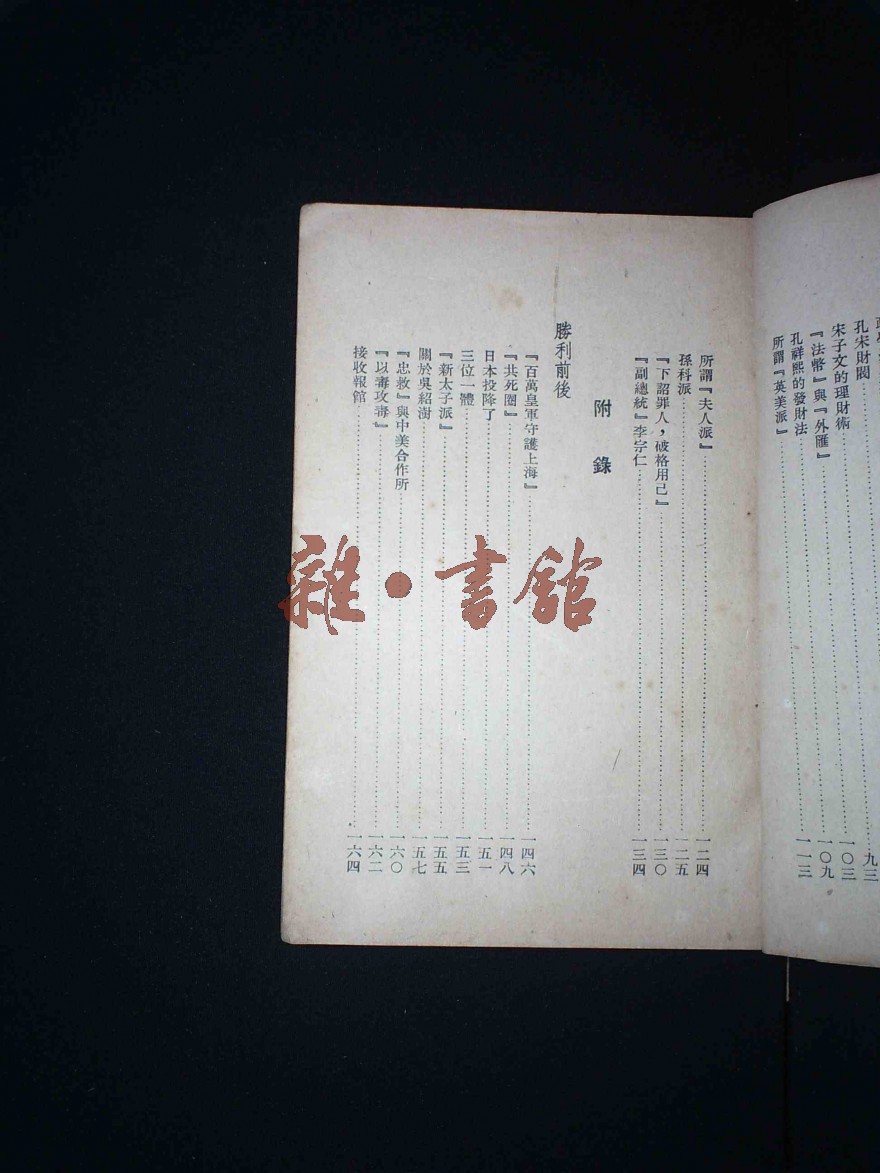 孔宋財閥……九三
宋子文的理財術……一〇三
『法幣』與『外匯』……一〇九
孔祥熙的發財法
所謂『英美派』……一一三
所謂『夫人派』……一二四
孫科派……一二五
『下詔罪人，破格用己』……一三〇
『副總統』李宗仁……一三四
附錄
勝利前後
『百萬皇軍守護上海』……一四六
『共死圈』……一四八
日本投降了……一五一
三位一體……一五三
『新太子派』……一五五
關於吳紹澍……一五七
『忠救』與中美合作所……一六〇
『以毒攻毒』……一六二
接收報館……一六四
雜·書館